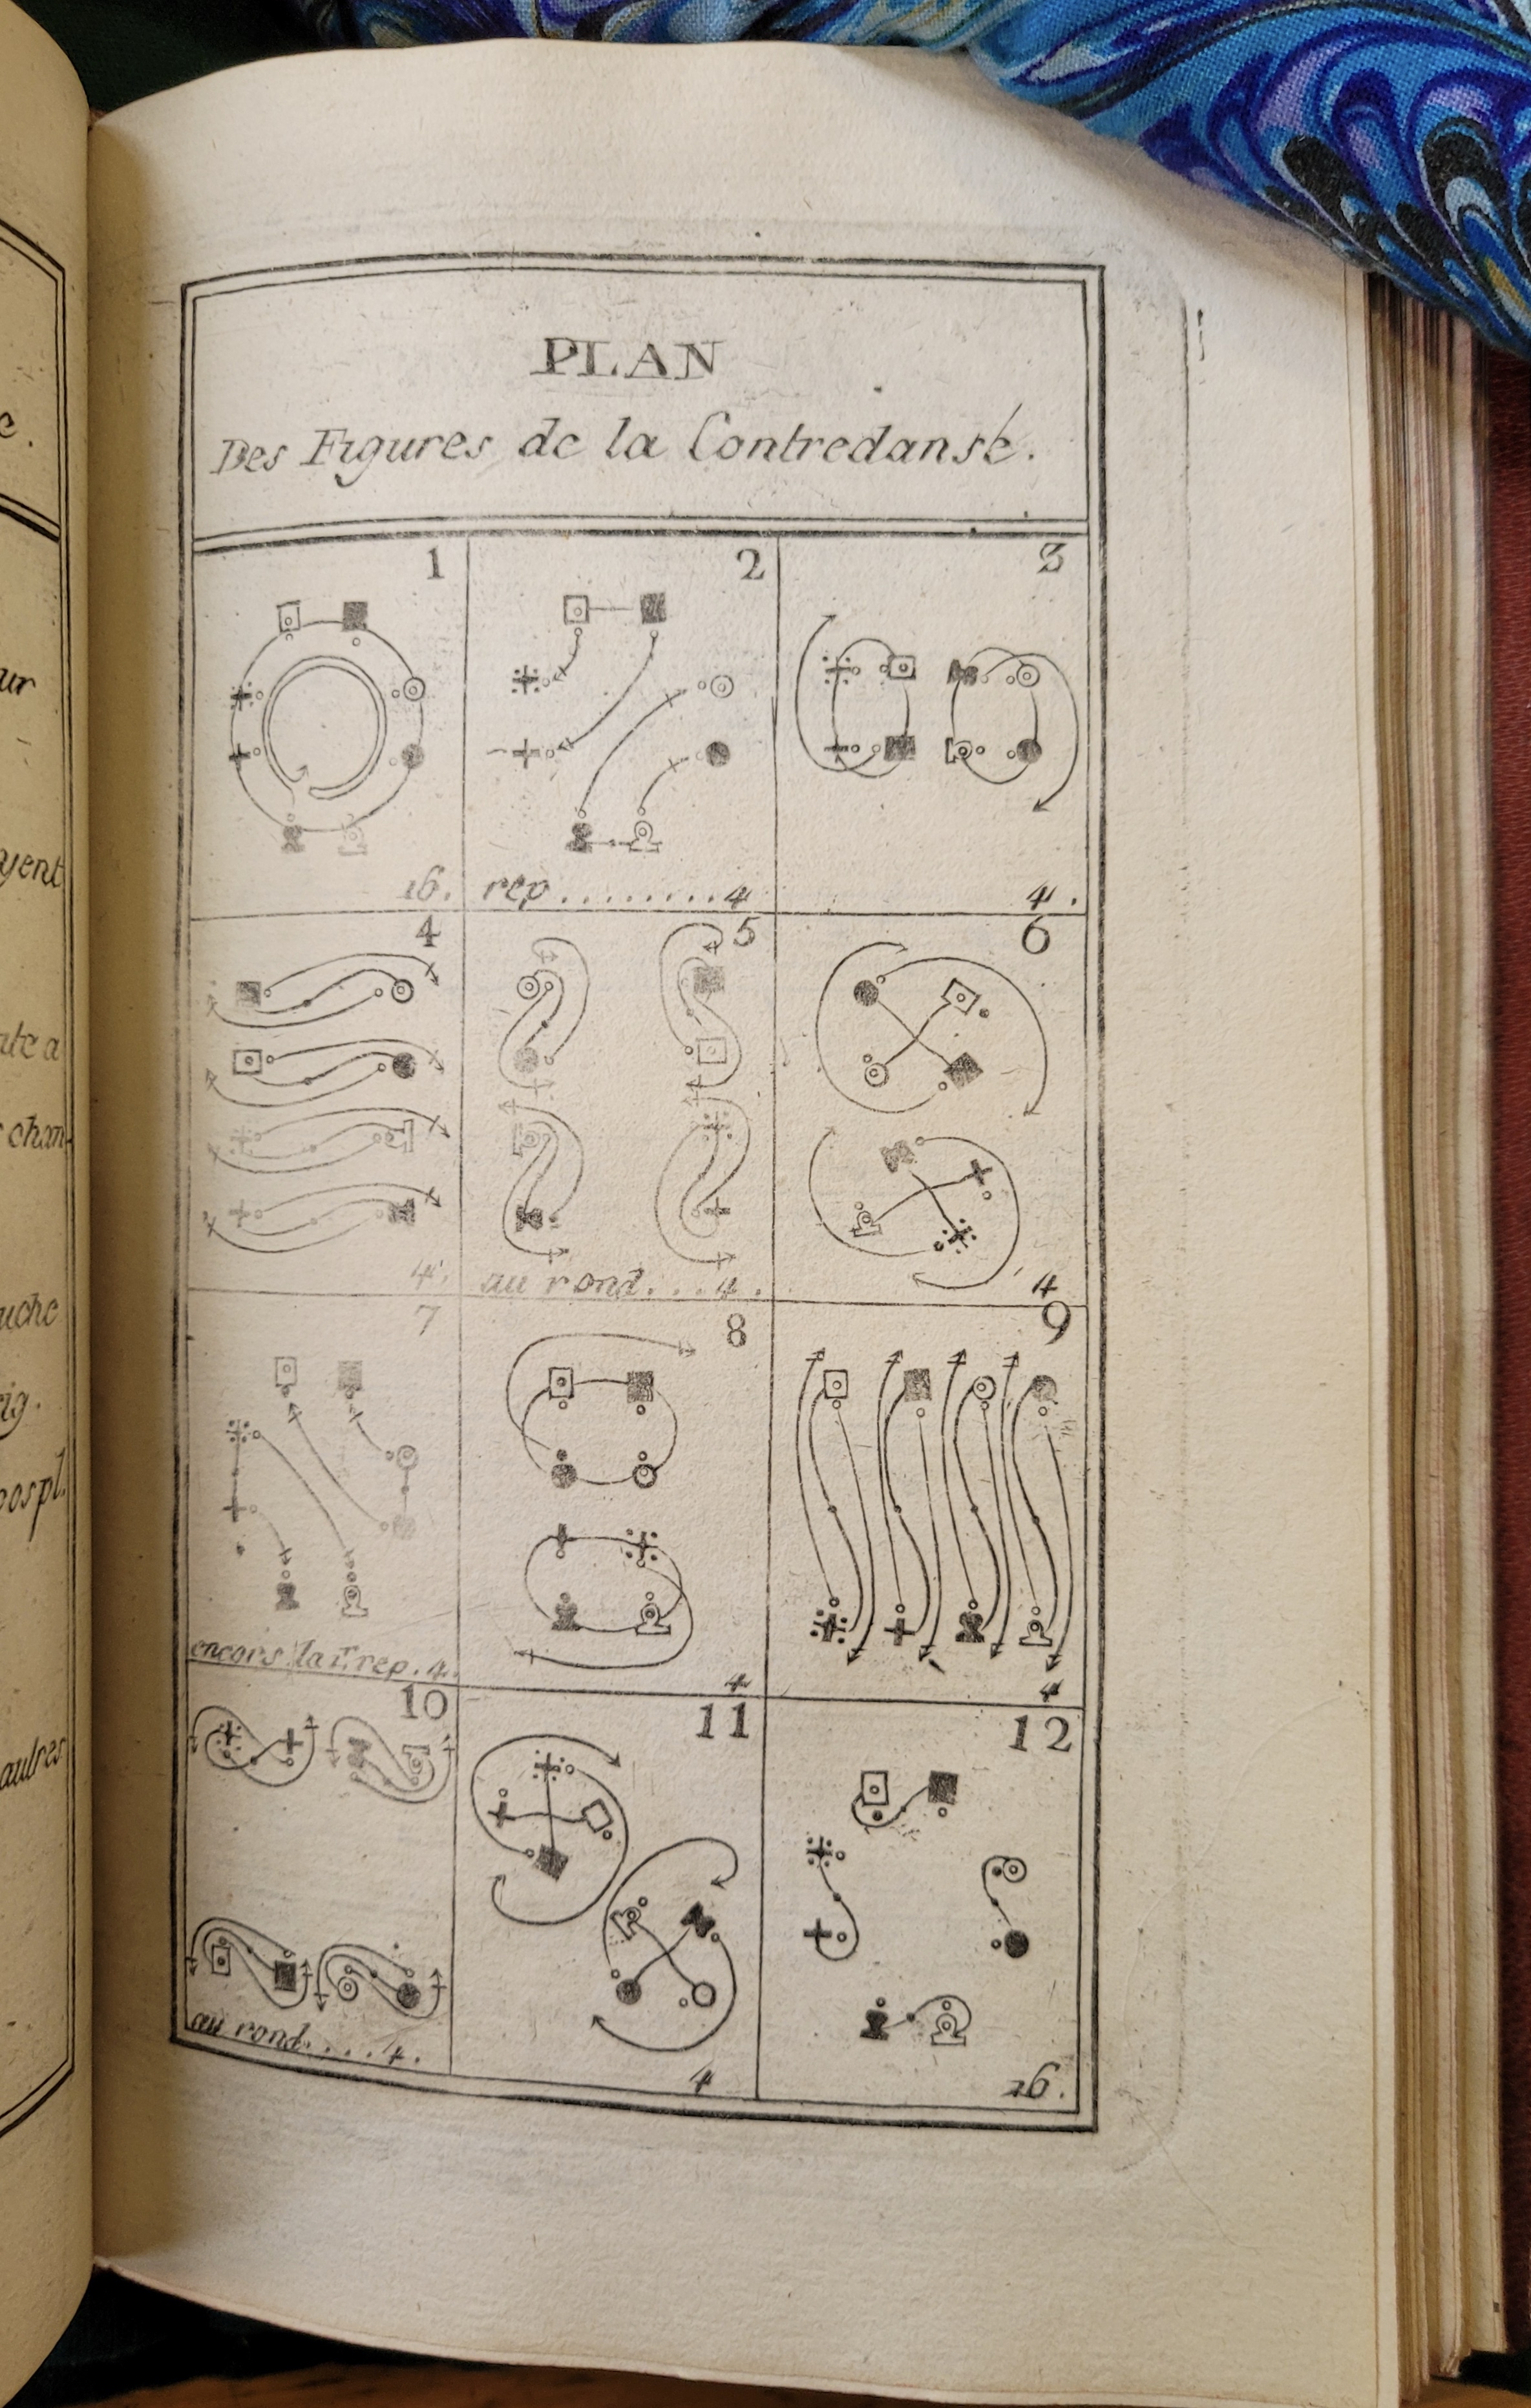 PLAN
Des Figures de la Contredanse.
1
2
3
16.
rep.........4
4.
4
5
6
4.
au rond....4.
4
7
8
9
encors la 1. rep. 4.
4
4
10
11
12
au rond.....4.
4
16.
c.
ur
yent
ate a
chan-
uche
rig.
pospl.
autres